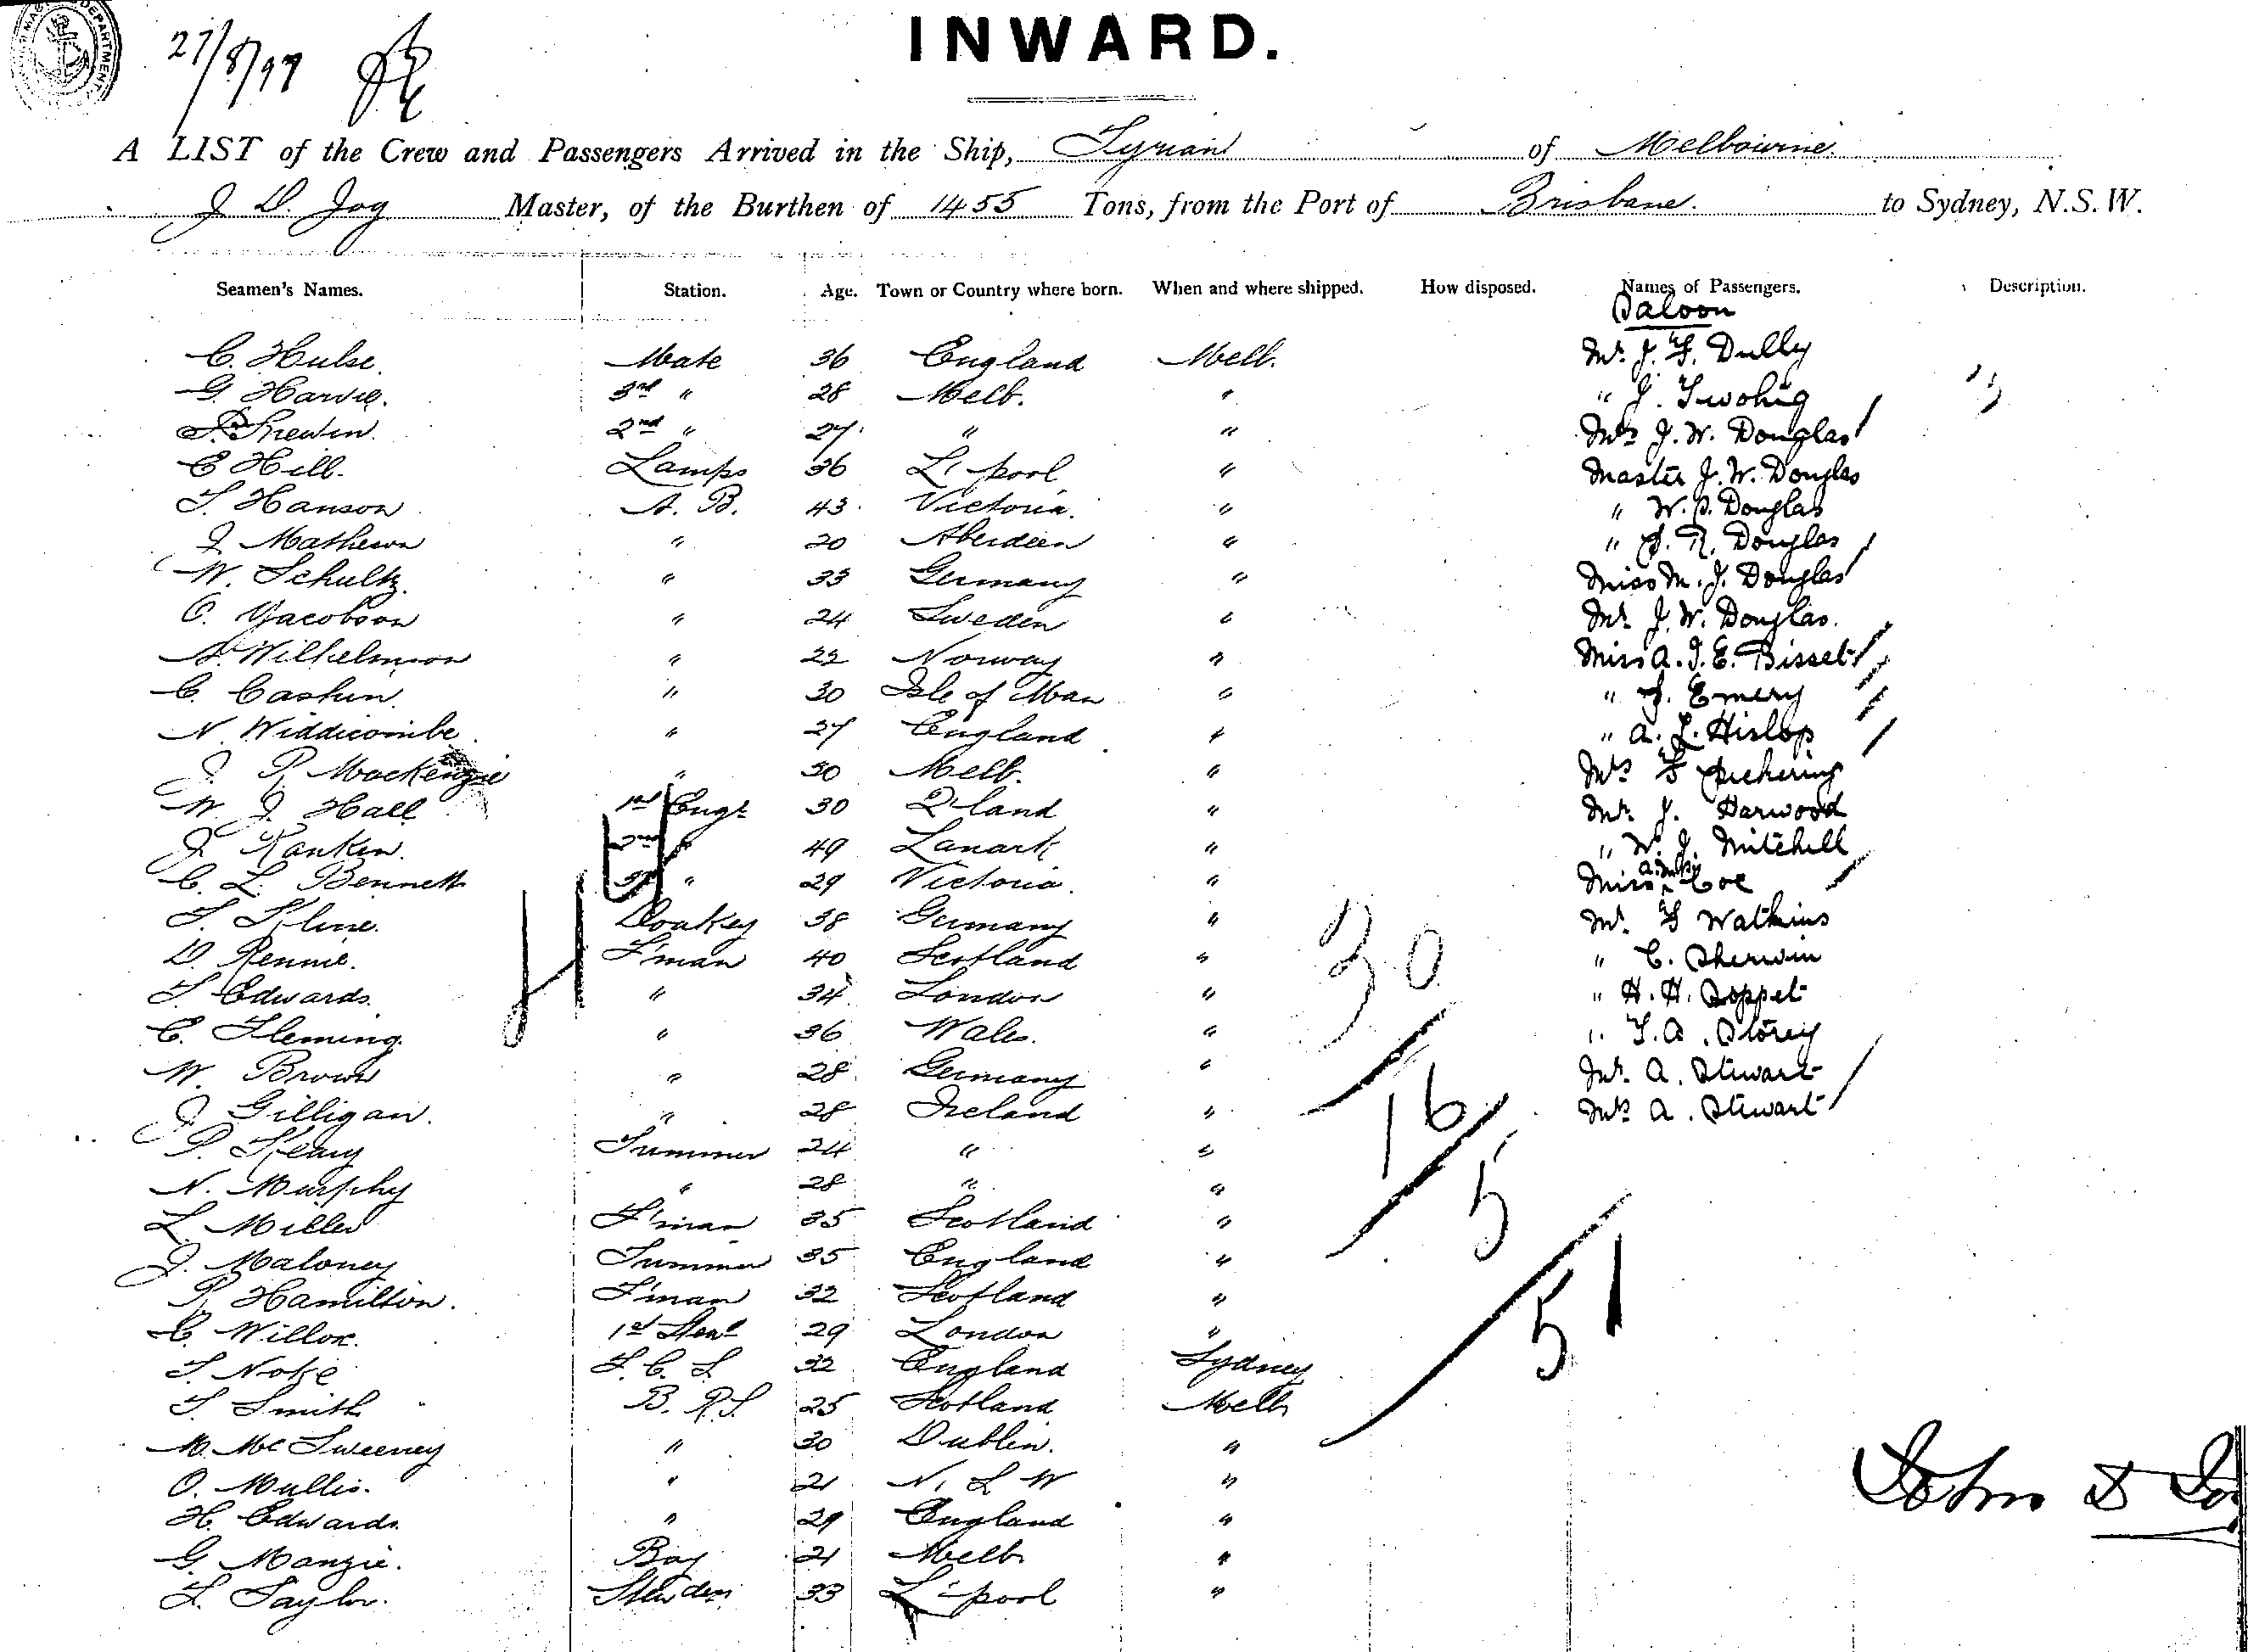 MARINE DEPARTMENT
27/8/97
INWARD.
A LIST of the Crew and Passengers Arrived in the Ship, Tyrian of Melbourne.
J D. Joy Master, of the Burthen of 1455 Tons, from the Port of Brisbane. to Sydney, N.S.W.
Seamen's Names. Station. Age. Town or Country where born. When and where shipped. How disposed. Names of Passengers. Description.
Saloon
C. Hulse. Mate 36 England Melb. Mr. J. F. Dully
G. Harvie. 3rd " 28 Melb. " " J. Twohig
Trewin. 2nd " 27 " " Mrs J. W. Douglas
E Hill. Lamps 36 L'pool " Master J. W. Douglas
T. Hanson A. B. 43 Victoria. " " W. S. Douglas
J. Matheson " 20 Aberdeen " " S. R. Douglas
W. Schultz. " 33 Germany " Miss M. J. Douglas
O. Yacobson " 24 Sweden " Mr. J. W. Douglas.
A. Wilhelmson " 22 Norway " Miss A. I. E. Bisset
C. Cashin. " 30 Isle of Man " " S. Emery
N. Widdicombe. " 27 England " " A. L. Hislop
J. R. Mackenzie " 30 Melb. " Mrs F Pickering
W. J. Hall 1st Engr 30 Q'land " Mr. J. Harwood
J. Rankin. 2nd " 49 Lanark " " W. J. Mitchell
C. L. Bennett 3rd " 29 Victoria. " Miss Coe
T. Kline. Donkey 38 Germany " Mr. F Watkins
D. Rennie. F'man 40 Scotland " " C. Sherwin
T. Edwards. " 34 London " " H. H. Soppet
C. Fleming. " 36 Wales. " " T. A. Storey
W. Brown " 28 Germany " Mr. A. Stewart
J. Gilligan. " 28 Ireland " Mrs A. Stewart
P. Keary Trimmer 24 " "
N. Murphy " 28 " "
L. Miller F'man 35 Scotland "
J. Maloney Trimmer 35 England "
R. Hamilton. F'man 32 Scotland "
C. Willox. 1st Stewd 29 London "
T. Noke F. C. S. 32 England Sydney
T. Smith B. R.S. 25 Scotland Melb
M. McSweeney " 30 Dublin. "
O. Mullis. " 21 N. S. W "
H. Edwards " 29 England "
G. Manzie. Boy 21 Melb "
L. Taylor. 33 L'pool "
30
16
5
51
John D Jo